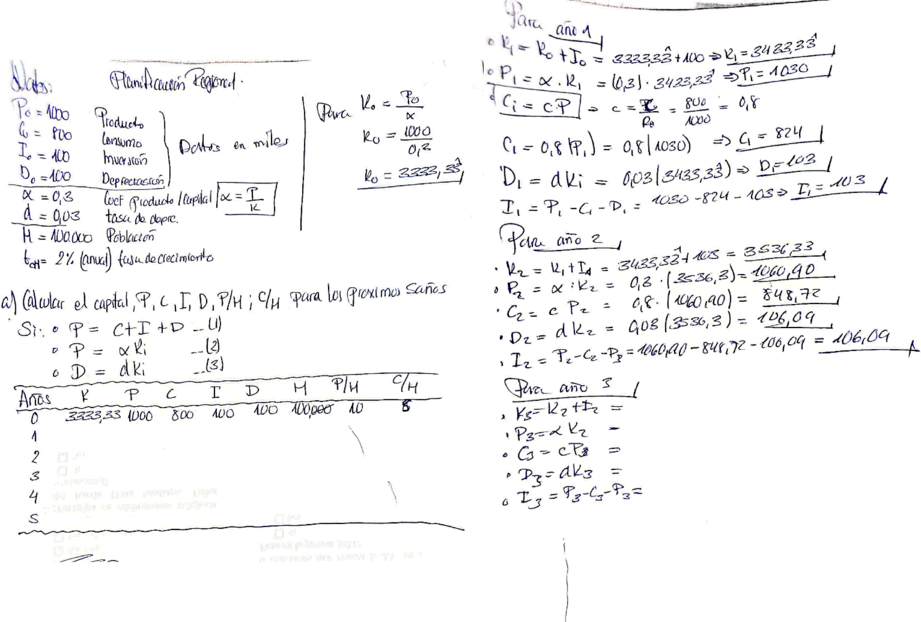 Datos: Planificación Regional.
P₀ = 1000 Producto
C₀ = 800 Consumo
I₀ = 100 Inversión
D₀ = 100 Depreciación
Datos en miles
α = 0,3 Coef Producto/capital α = P/K
d = 0,03 tasa de depre.
H = 100,000 Población
= 2% (anual) tasa de crecimiento
Para K₀ = P₀/α
K₀ = 1000/0,3
K₀ = 3333,33̂
a) Calcular el capital, P, C, I, D, P/H; C/H para los proximos 5 años
Si: • P = C+I+D ...(1)
• P = αKi ...(2)
• D = dKi ...(3)
Años K P C I D H P/H C/H
0 3333,33 1000 800 100 100 100,000 10 8
1
2
3
4
5
Para año 1
• K₁ = K₀ + I₀ = 3333,33̂ + 100 ⇒ K₁ = 3433,33̂
• P₁ = α . K₁ = (0,3) . 3433,33̂ ⇒ P₁ = 1030
Ci = cP ⇒ c = C/P₀ = 800/1000 = 0,8
C₁ = 0,8(P₁) = 0,8(1030) ⇒ C₁ = 824
D₁ = dKi = 0,03(3433,33̂) ⇒ D₁ = 103
I₁ = P₁ - C₁ - D₁ = 1030 - 824 - 103 ⇒ I₁ = 103
Para año 2
• K₂ = K₁ + I₁ = 3433,33̂ + 103 = 3536,33
• P₂ = α . K₂ = 0,3 . (3536,3) = 1060,90
• C₂ = c P₂ = 0,8 . (1060,90) = 848,72
• D₂ = d K₂ = 0,03 (3536,3) = 106,09
• I₂ = P₂ - C₂ - P₃ = 1060,90 - 848,72 - 106,09 = 106,09
Para año 3
• K₃ = K₂ + I₂ =
• P₃ = α K₂ =
• C₃ = c P₃ =
• D₃ = dK₃ =
• I₃ = P₃ - C₃ - P₃ =